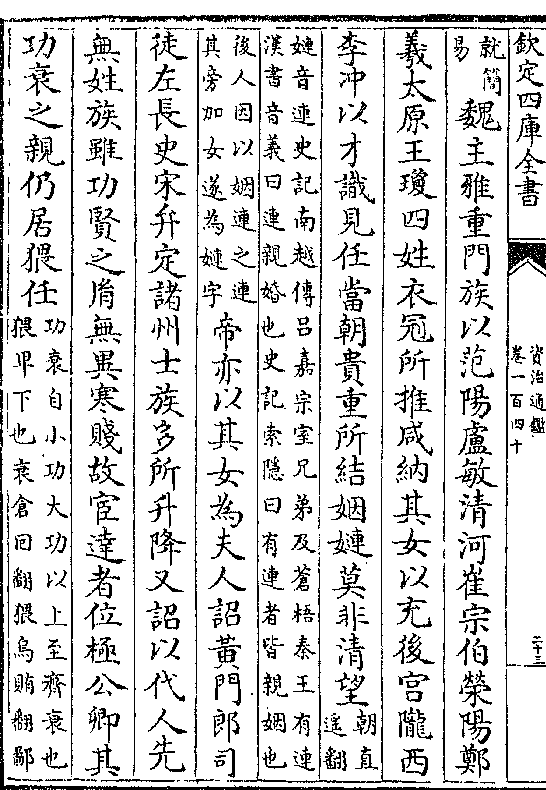 欽定四庫全書
資治通鑑
卷一百四十
二十三
就簡
易
魏主雅重門族以范陽盧敏清河崔宗伯滎陽鄭
羲太原王瓊四姓衣冠所推咸納其女以充後宮隴西
李沖以才識見任當朝貴重所結姻㜕莫非清望
朝直
遥翻
㜕音連史記南越傳吕嘉宗室兄弟及蒼梧秦王有連
漢書音義曰連親婚也史記索隱曰有連者皆親姻也
後人因以姻連之連
其旁加女遂為㜕字
帝亦以其女為夫人詔黄門郎司
徒左長史宋弁定諸州士族多所升降又詔以代人先
無姓族雖功賢之胄無異寒賤故宦達者位極公卿其
功衰之親仍居猥任
功衰自小功大功以上至齊衰也
猥卑下也衰倉回翻猥烏賄翻鄙